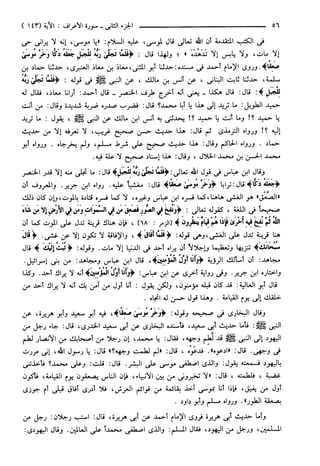 ٥٦ الجزء الثانى - سورة الأعراف : الآية (١٤٣)
فى الكتب المتقدمة أن الله تعالى قال لموسى، عليه السلام: «يا موسى، إنه لا يرانى حى
إلا مات، ولا يابس إلا تدهده» ؛ ولهذا قال : ﴿فَلَمَّا تَجَلَّىٰ رَبُّهُ لِلْجَبَلِ جَعَلَهُ دَكًّا وَخَرَّ مُوسَىٰ
صَعِقًا﴾. وروى الإمام أحمد فى مسنده: حدثنا أبو المثنى، معاذ بن معاذ العنبرى، حدثنا حماد بن
سلمة، حدثنا ثابت البنانى ، عن أنس بن مالك ، عن النبى ﷺ فى قوله : ﴿فَلَمَّا تَجَلَّىٰ رَبُّهُ
لِلْجَبَلِ﴾ : قال: قال هكذا - يعنى أنه أخرج طرف الخنصر - قال أحمد: أرانا معاذ، فقال له
حميد الطويل: ما تريد إلى هذا يا أبا محمد؟ قال: فضرب صدره ضربة شديدة وقال: من أنت
يا حميد ؟! وما أنت يا حميد ؟! يحدثنى به أنس ابن مالك عن النبى ﷺ ، يقول : ما تريد
إليه ؟! ورواه الترمذى ثم قال: هذا حديث حسن صحيح غريب، لا نعرفه إلا من حديث
حماد . ورواه الحاكم وقال: هذا حديث صحيح على شرط مسلم، ولم يخرجاه . ورواه أبو
محمد الحسن بن محمد الخلال ، وقال: هذا إسناد صحيح لا علة فيه.
وقال ابن عباس فى قول الله تعالى: ﴿فَلَمَّا تَجَلَّىٰ رَبُّهُ لِلْجَبَلِ﴾ قال: ما تجلى منه إلا قدر الخنصر
﴿جَعَلَهُ دَكًّا﴾ قال: ترابا ﴿وَخَرَّ مُوسَىٰ صَعِقًا﴾ قال: مغشياً عليه. رواه ابن جرير. والمعروف أن
«الصعق» هو الغشى هاهنا، كما فسره ابن عباس وغيره، لا كما فسره قتادة بالموت، وإن كان ذلك
صحيحاً فى اللغة ، كقوله تعالى : ﴿وَنُفِخَ فِي الصُّورِ فَصَعِقَ مَن فِي السَّمَوَاتِ وَمَن فِي الْأَرْضِ إِلَّا مَن شَاءَ
اللَّهُ ثُمَّ نُفِخَ فِيهِ أُخْرَىٰ فَإِذَا هُمْ قِيَامٌ يَنظُرُونَ﴾ [الزمر : ٦٨] ، فإن هناك قرينة تدل على الموت كما أن
هنا قرينة تدل على الغشى، وهى قوله: ﴿فَلَمَّا أَفَاقَ﴾ ، والإفاقة لا تكون إلا عن غشى. ﴿قَالَ
سُبْحَانَكَ﴾ تنزيها وتعظيما وإجلالاً أن يراه أحد فى الدنيا إلا مات. وقوله: ﴿تُبْتُ إِلَيْكَ﴾ قال
مجاهد: أن أسألك الرؤية ﴿وَأَنَا أَوَّلُ الْمُؤْمِنِينَ﴾ قال ابن عباس ومجاهد: من بنى إسرائيل.
واختاره ابن جرير. وفى رواية أخرى عن ابن عباس: ﴿وَأَنَا أَوَّلُ الْمُؤْمِنِينَ﴾ أنه لا يراك أحد. وكذا
قال أبو العالية: قد كان قبله مؤمنون، ولكن يقول : أنا أول من آمن بك أنه لا يراك أحد من
خلقك إلى يوم القيامة . وهذا قول حسن له اتجاه .
وقال البخارى فى صحيحه وقوله: ﴿وَخَرَّ مُوسَىٰ صَعِقًا﴾، فيه أبو سعيد وأبو هريرة، عن
النبى ﷺ: فأما حديث أبى سعيد، فأسنده البخارى عن أبى سعيد الخدرى، قال: جاء رجل من
اليهود إلى النبى ﷺ قد لُطِم وجهه، فقال: يا محمد، إن رجلا من أصحابك من الأنصار لطم
فى وجهى. قال: «ادعوه». فدعَوْه ، قال: «لم لطمت وجهه؟» قال: يا رسول الله، إنى مررت
باليهود فسمعته يقول: والذى اصطفى موسى على البشر. قال: قلت: وعلى محمد؟ فأخذتنى
غضبة ، فلطمته ، قال: «لا تخيرونى من بين الأنبياء، فإن الناس يصعقون يوم القيامة، فأكون
أول من يفيق، فإذا أنا بموسى آخذ بقائمة من قوائم العرش، فلا أدرى أفاق قبلى أم جوزى
بصعقة الطور» . ورواه مسلم وأبو داود .
وأما حديث أبى هريرة فروى الإمام أحمد عن أبى هريرة، قال: استب رجلان: رجل من
المسلمين، ورجل من اليهود، فقال المسلم: والذى اصطفى محمداً على العالمين. وقال اليهودى: